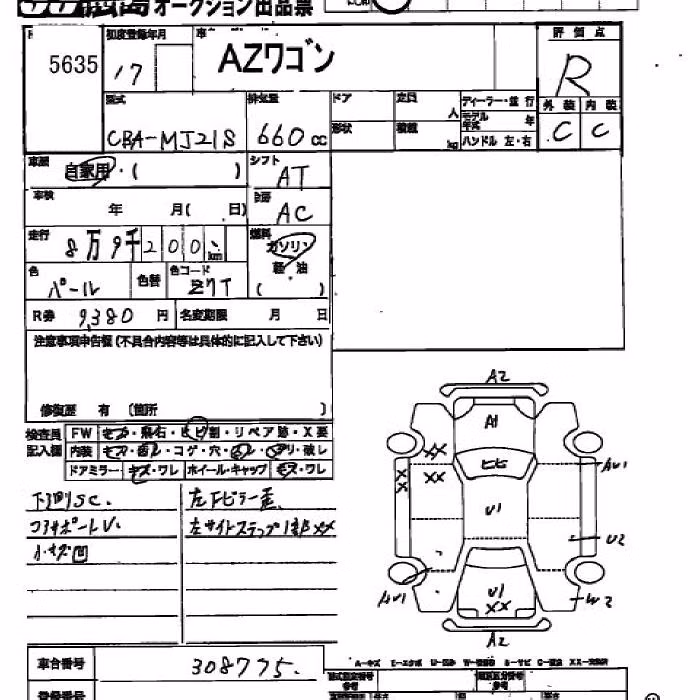 オークション出品票
5635
初度登録年月
17
AZワゴン
評価点
R
型式
CBA-MJ21S
排気量
660cc
ドア
定員
人
ディーラー・並行
モデル年式
年
形状
積載
kg
ハンドル 左・右
外装 内装
C C
車歴
自家用・( )
シフト
AT
車検
年 月( 日)
冷房
AC
走行
8万9千200km
燃料
ガソリン
軽・油
( )
色
パール
色替
色コード
Z7T
R券 9,380 円
名変期限 月 日
注意事項申告欄(不具合内容等は具体的に記入して下さい)
修復歴 有 〔箇所 〕
検査員記入欄
FW キズ・飛石・ヒビ割・リペア跡・X要
内装
コゲ・穴
破レ
ドアミラー・キズ・ワレ ホイール・キャップ キズ・ワレ
下回りSC.
コアサポートV.
小キズ凹
左Fピラー歪
左サイドステップ1部XX
A2
A1
XX
XX
XX
ヒビ
AU1
U1
U2
AU1
U1
XX
W2
A2
車台番号
308775.
A-キズ E-エクボ U-凹み
登録番号